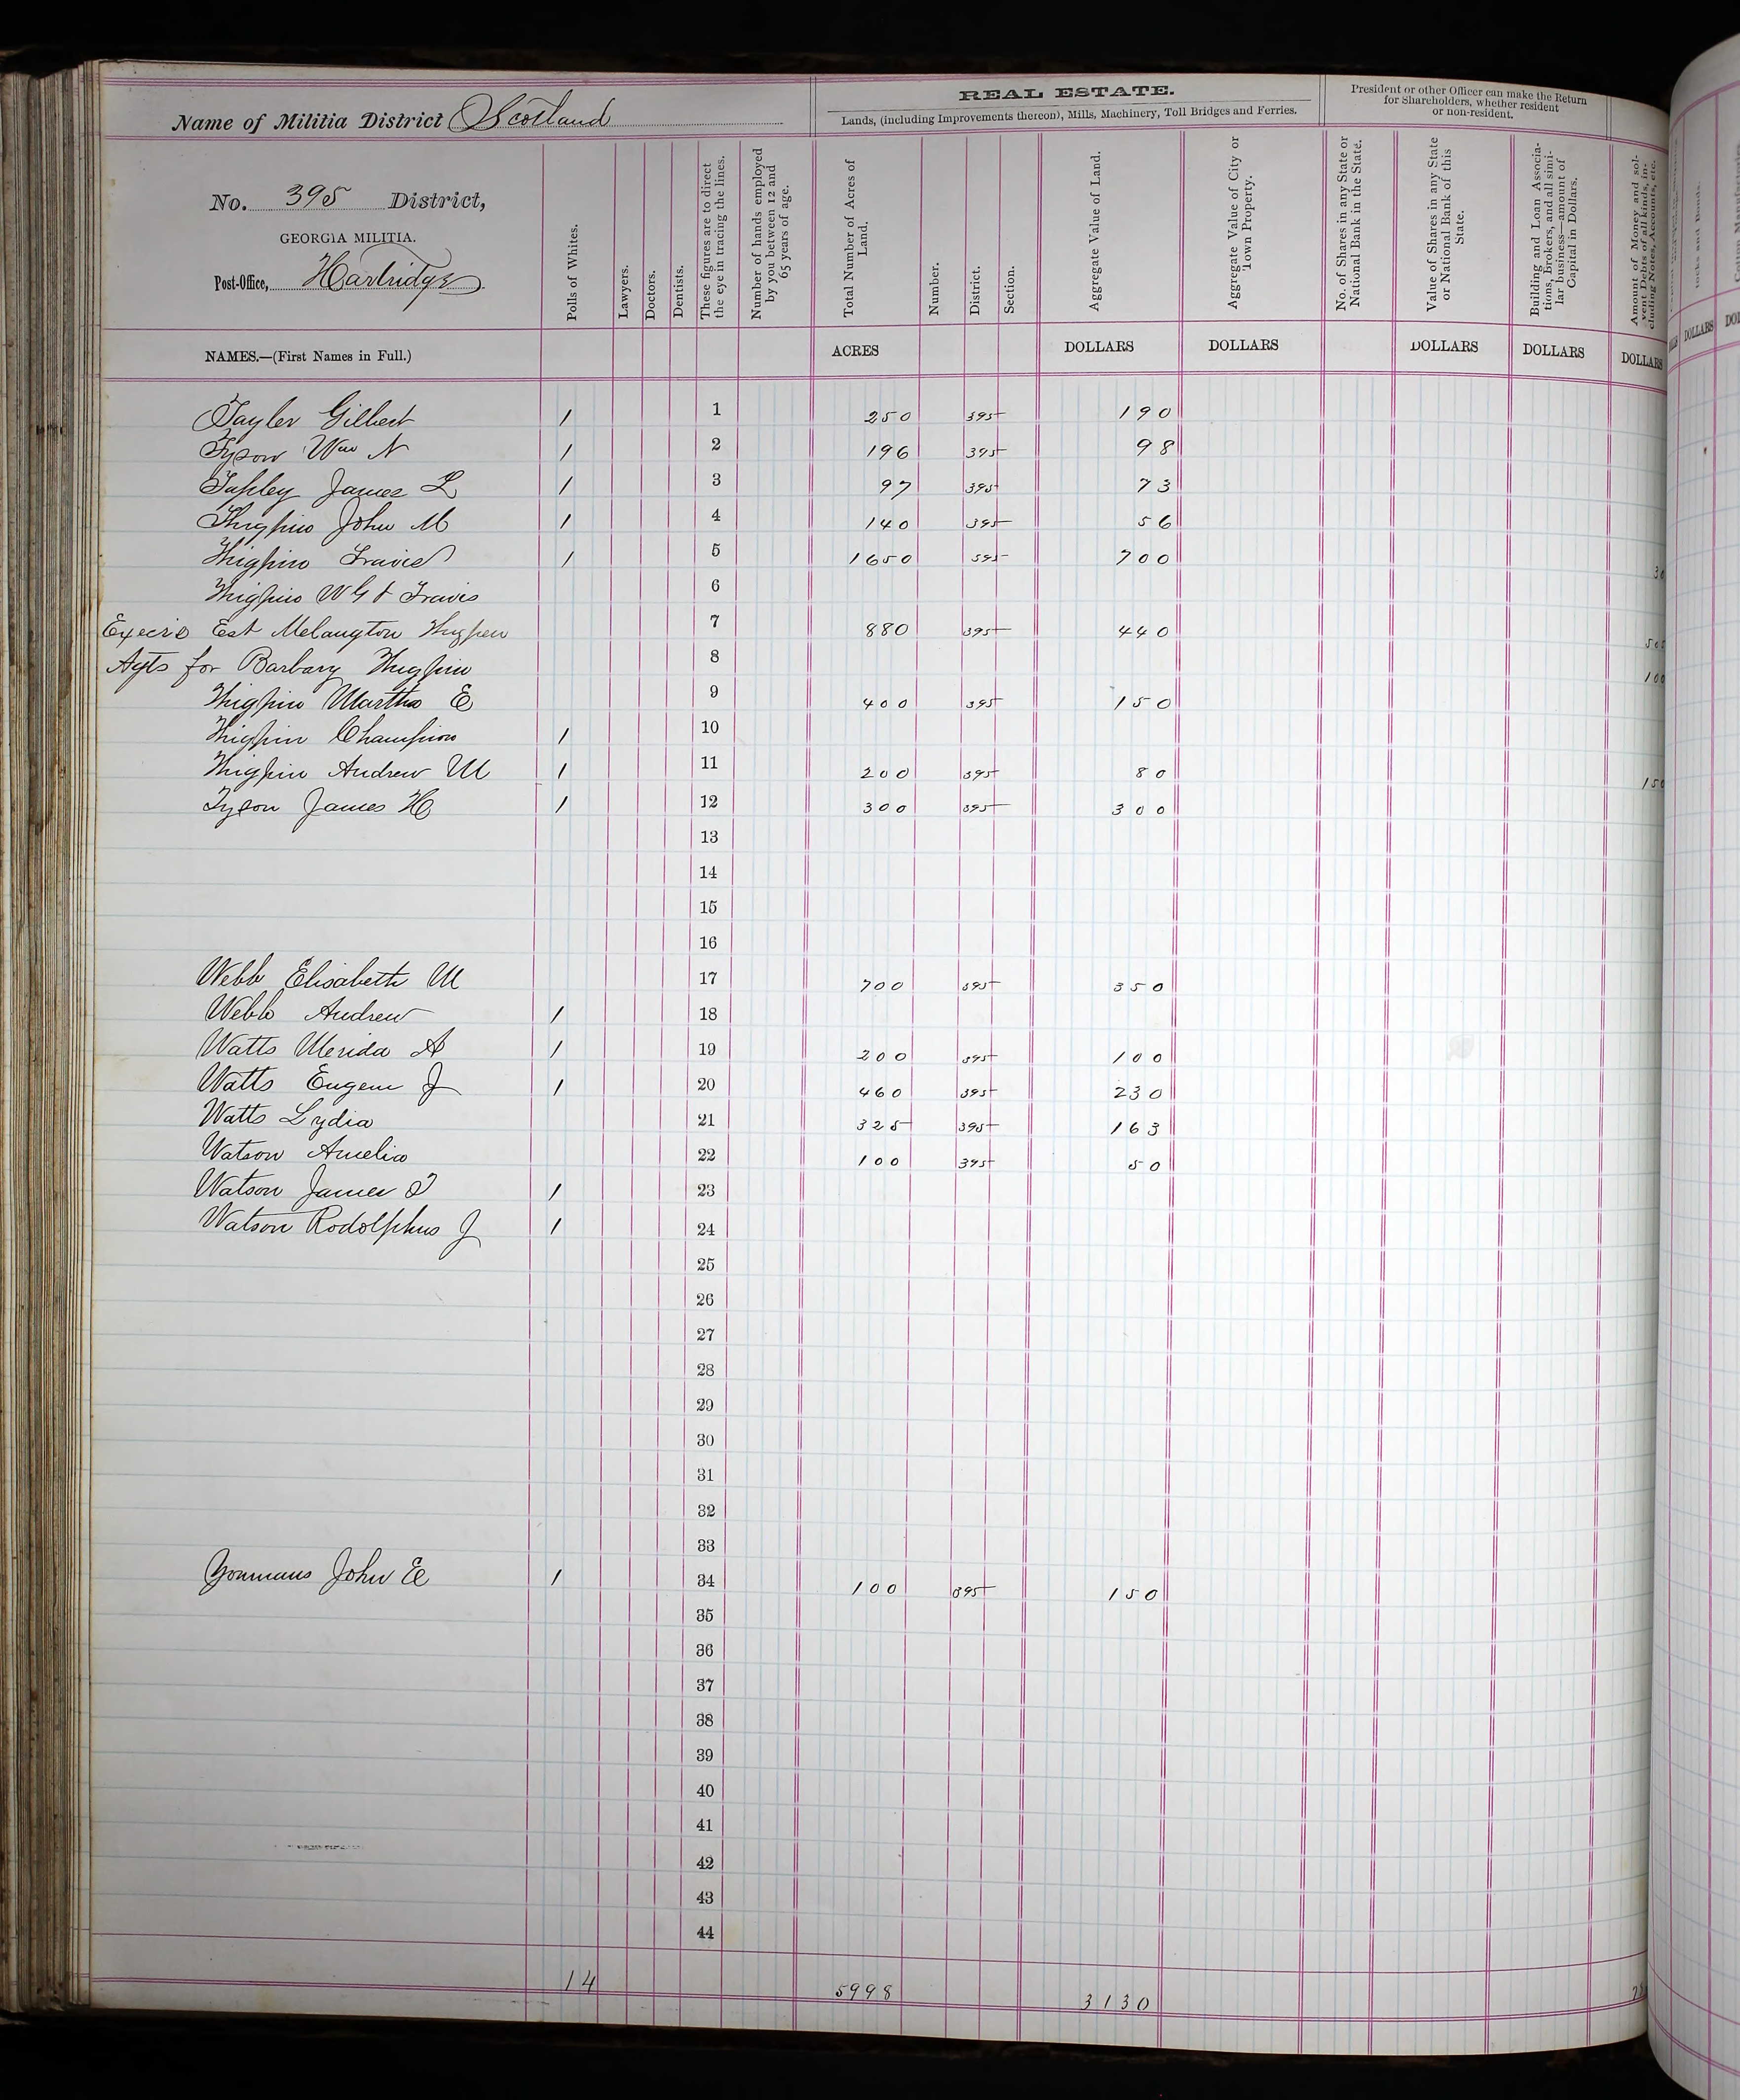 Name of Militia District Scotland
REAL ESTATE.
Lands, (including Improvements thereon), Mills, Machinery, Toll Bridges and Ferries.
President or other Officer can make the Return
for Shareholders, whether resident
or non-resident.
No. 395 District,
GEORGIA MILITIA.
Post-Office, Hartridge
NAMES.—(First Names in Full.)
Polls of Whites.
Lawyers.
Doctors.
Dentists.
These figures are to direct
the eye in tracing the lines.
Number of hands employed
by you between 12 and
65 years of age.
Total Number of Acres of
Land.
Number.
District.
Section.
Aggregate Value of Land.
Aggregate Value of City or
Town Property.
No. of Shares in any State or
National Bank in the State.
Value of Shares in any State
or National Bank of this
State.
Building and Loan Associa-
tions, brokers, and all simi-
lar business—amount of
Capital in Dollars.
Amount of Money and sol-
vent Debts of all kinds, in-
cluding Notes, Accounts, etc.
ACRES DOLLARS DOLLARS DOLLARS DOLLARS DOLLARS DOLLARS
Tayler Gilbert 1 1 250 395 190
Tyson Wm N 1 2 196 395 98
Tapley James L 1 3 97 395 73
Thigpin John M 1 4 140 395 56
Thigpin Travis 1 5 1650 395 700
Thigpin W G & Travis 6
Execrs Est Melangton Thigpen 7 880 395 440
Agts for Barbary Thigpin 8 100
Thigpin Martha E 9 400 395 150
Thigpin Champion 1 10
Thigpin Andrew M 1 11 200 395 80 150
Tyson James H 1 12 300 395 300
13
14
15
16
Webb Elisabeth M 17 700 395 350
Webb Andrew 1 18
Watts Merida A 1 19 200 395 100
Watts Eugene J 1 20 460 395 230
Watts Lydia 21 325 395 163
Watson Amelia 22 100 395 50
Watson James T 1 23
Watson Rodolphus J 1 24
25
26
27
28
29
30
31
32
33
Youmans John E 1 34 100 395 150
35
36
37
38
39
40
41
42
43
44
14 5998 3130